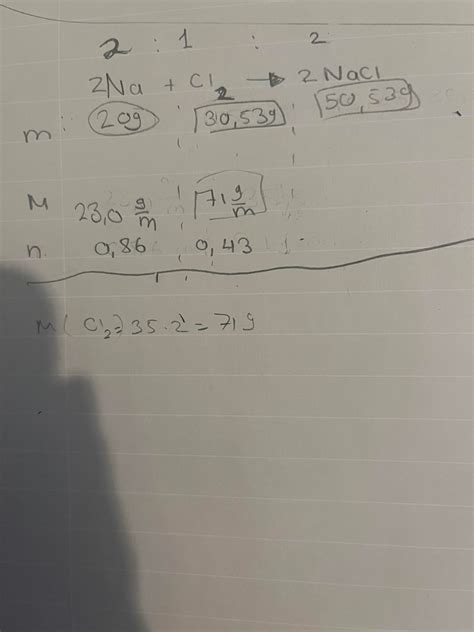 2 : 1 : 2
2Na + Cl₂ → 2NaCl
m: 20g 30,53g 50,53g
M 23,0 g/m 71 g/m
n. 0,86 0,43
M(Cl₂) 35·2 = 71g